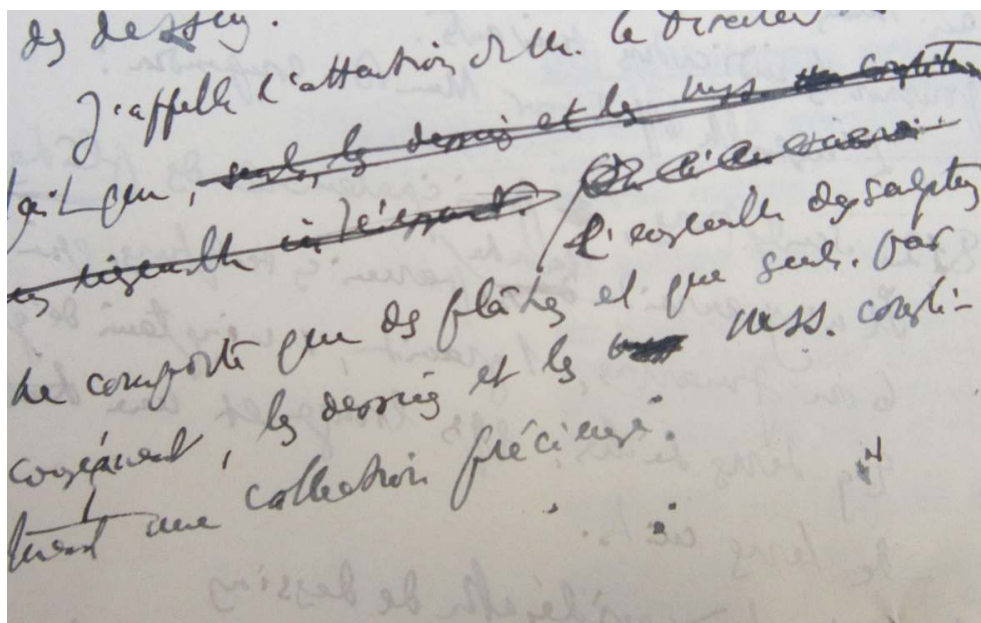 des dessins.
J'appelle l'attention de M. le Directeur
fait que, seuls, les dessins et les mss. constituent
un ensemble intéressant. l'ensemble des sculptures
ne comporte que des plâtres et que seuls, par
conséquent, les dessins et les mss. consti-
tuent une collection précieuse.